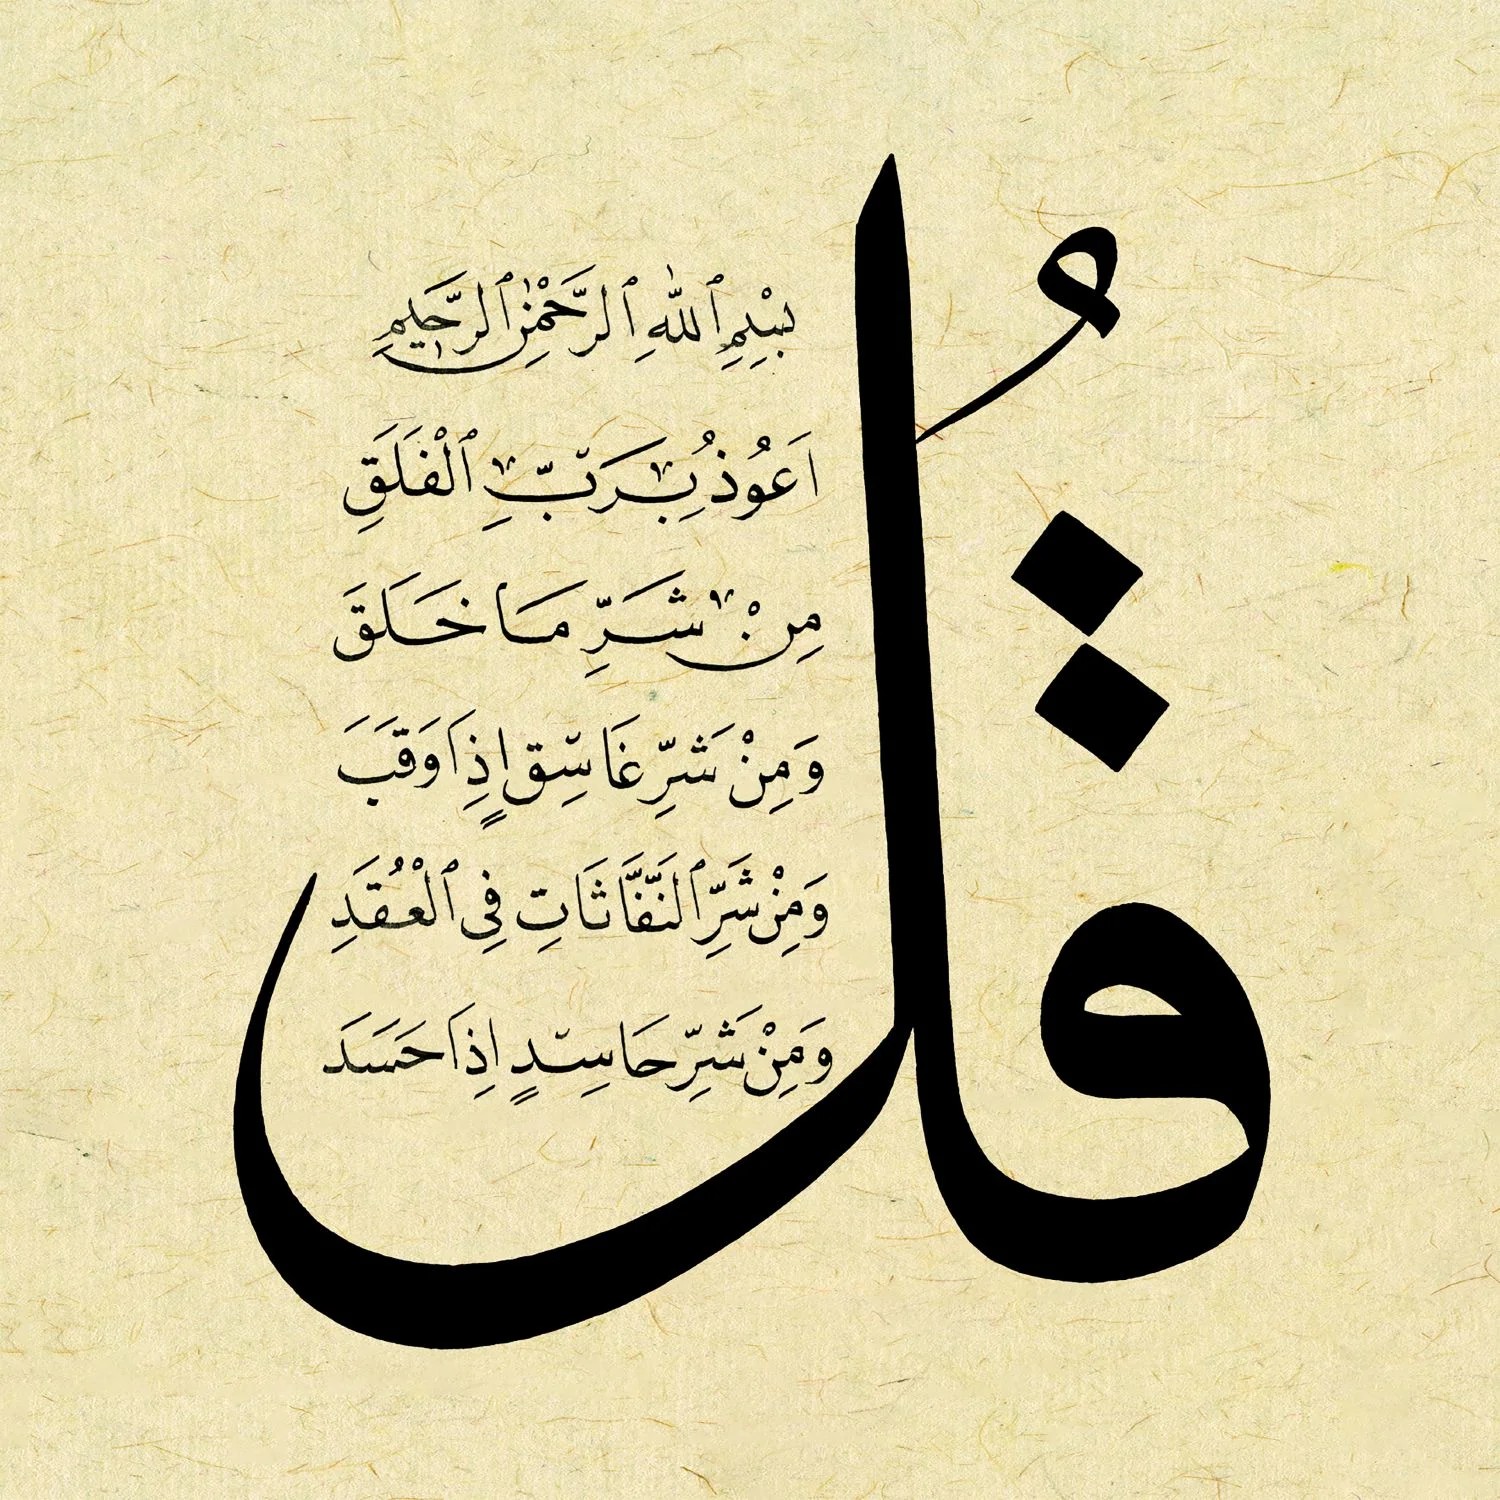 قُلْ
بِسْمِ ٱللّٰهِ ٱلرَّحْمٰنِ ٱلرَّحِيمِ
اَعُوذُ بِرَبِّ ٱلْفَلَقِ
مِنْ شَرِّ مَا خَلَقَ
وَمِنْ شَرِّ غَاسِقٍ اِذَا وَقَبَ
وَمِنْ شَرِّ ٱلنَّفَّاثَاتِ فِى ٱلْعُقَدِ
وَمِنْ شَرِّ حَاسِدٍ اِذَا حَسَدَ